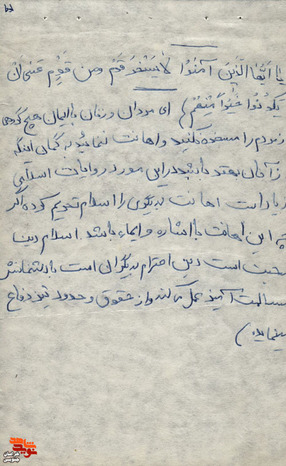 یا ایها الذین آمنوا لا یسخر قوم من قوم عسی ان
یکونوا خیرا منهم) ای مردان و زنان با ایمان هیچ گروهی
مردم را مسخره نکنند و اهانت ننمایند به گمان اینکه
از آنان بهتر باشند در این مورد روایات اسلامی
زیاد است اهانت به دیگری را اسلام تحریم کرده اگر
چه این اهانت با اشاره و ایماء باشد. اسلام دین
محبت است دین احترام به دیگران است با دشمنش
مسالمت آمیز عمل می کند و از حقوق و حدود خود دفاع
مینماید)